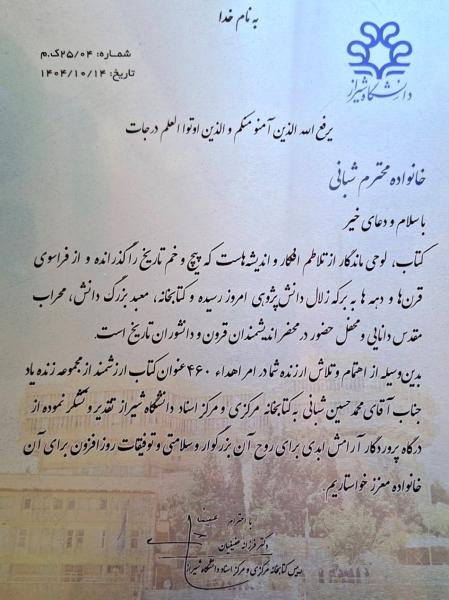 به نام خدا
دانشگاه شیراز
شماره: ۲۵/۰۴ک.م
تاریخ: ۱۴۰۴/۱۰/۱۴
یرفع الله الذین آمنو منکم و الذین اوتوا العلم درجات
خانواده محترم شبانی
با سلام و دعای خیر
کتاب، لوحی ماندگار از تلاطم افکار و اندیشه‌هاست که پیچ و خم تاریخ را گذرانده و از فراسوی
قرن‌ها و دهه ها به برکه زلال دانش‌پژوهی امروز رسیده و کتابخانه، معبد بزرگ دانش، محراب
مقدس دانایی و محفل حضور در محضر اندیشمندان قرون و دانشوران تاریخ است.
بدین‌وسیله از اهتمام و تلاش ارزنده شما در امر اهداء ۴۶۰ عنوان کتاب ارزشمند از مجموعه زنده یاد
جناب آقای محمدحسین شبانی به کتابخانه مرکزی و مرکز اسناد دانشگاه شیراز تقدیر و تشکر نموده از
درگاه پروردگار آرامش ابدی برای روح آن بزرگوار و سلامتی و توفیقات روزافزون برای آن
خانواده معزز خواستاریم.
با احترام
دکتر فرزانه
رییس کتابخانه مرکزی و مرکز اسناد دانشگاه شیراز